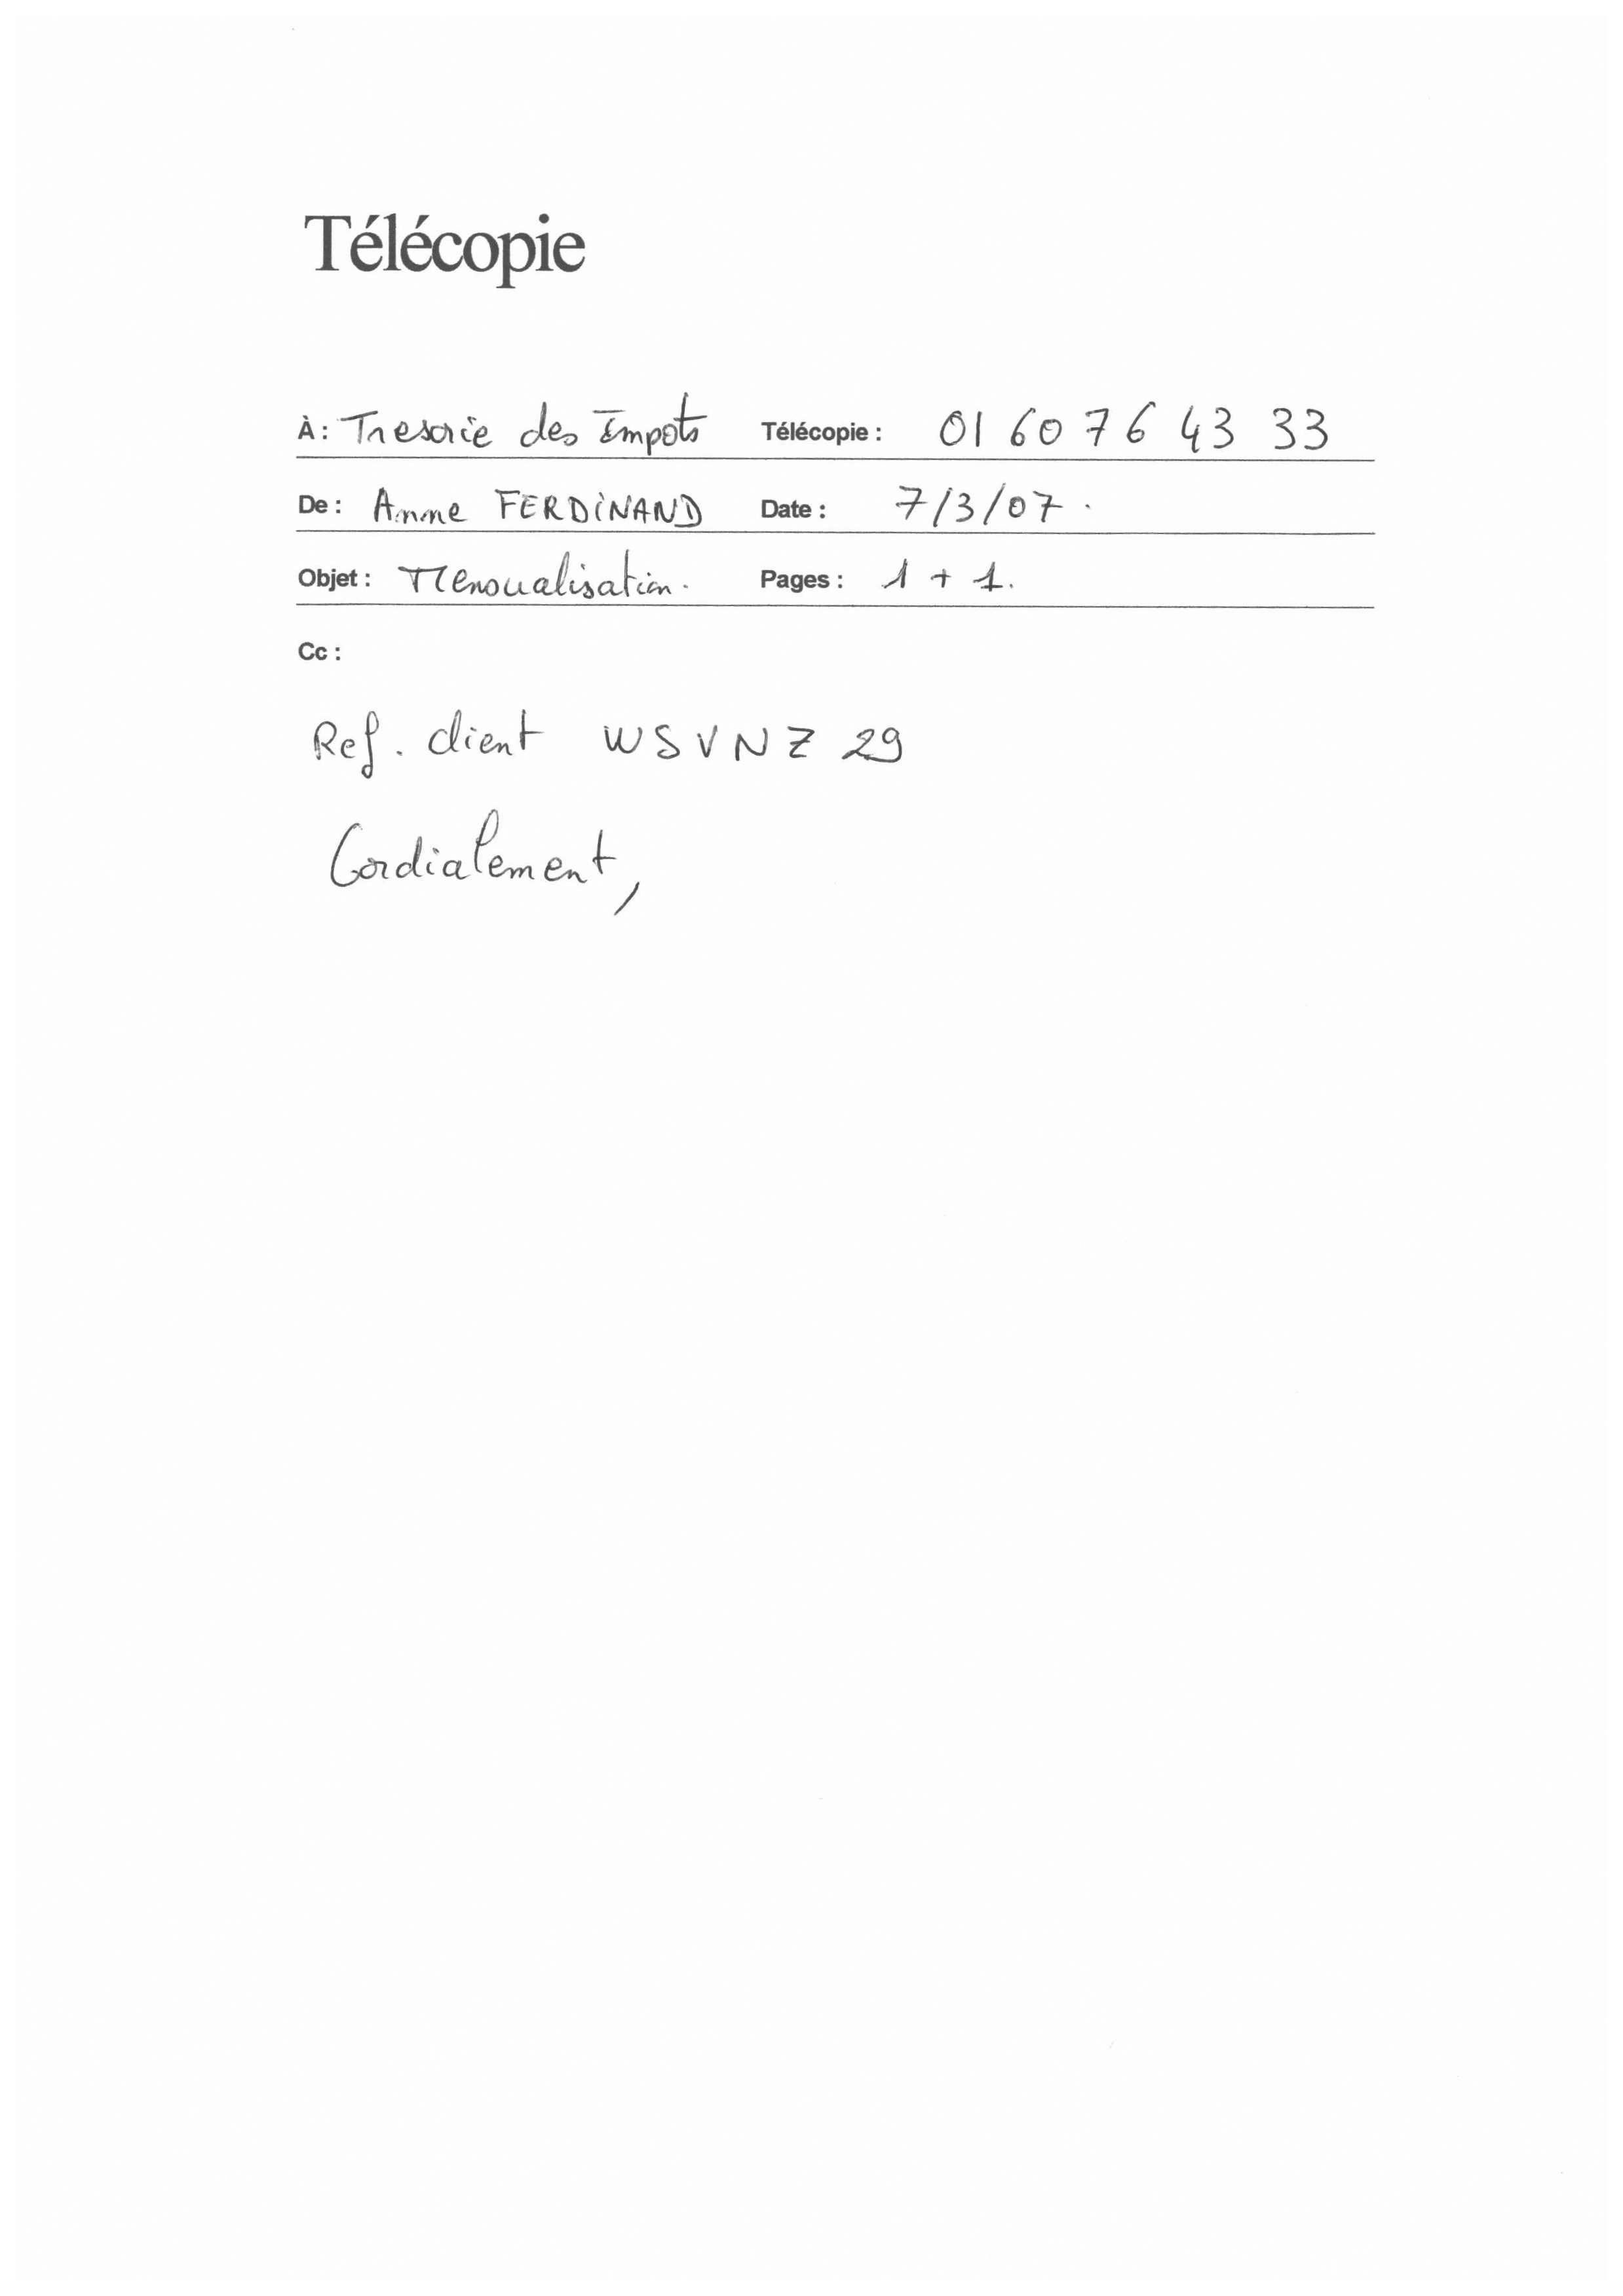 Télécopie
À : Tresorie des Impots Télécopie : 01 60 76 43 33
De : Anne FERDINAND Date : 7/3/07.
Objet : Mensualisation. Pages : 1 + 1.
Cc :
Ref. client WSVNZ 29
Cordialement,